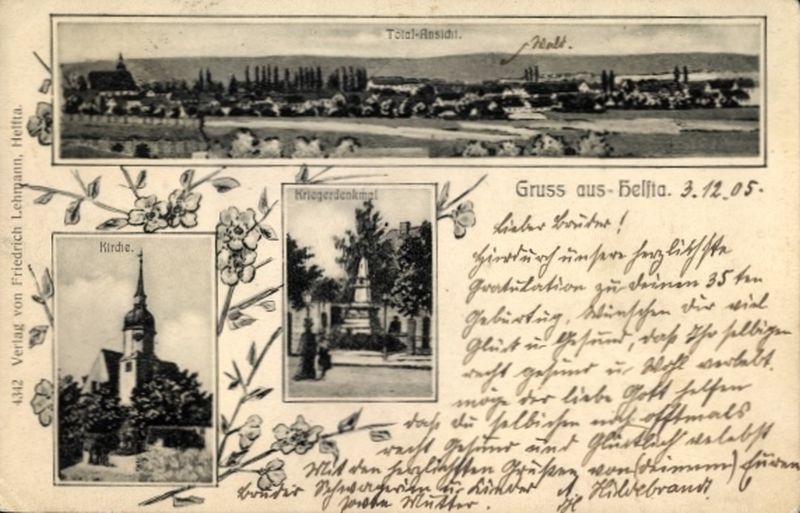 Total-Ansicht.
Wald.
Gruss aus Helfta. 3.12.05.
Kriegerdenkmal
Kirche.
4342 Verlag von Friedrich Lehmann, Helfta.
Lieber Bruder!
Hierdurch unsere herzlichste
Gratulation zu deinen 35 ten
Geburtug, Wünschen Dir viel
Glück u Gesund, daß Ihr selbigen
recht gesund u. Wohl verlebt.
möge der liebe Gott helfen
daß du selbichen noch offtmals
recht Gesund und Glücklich velebst
Mit den herzlichsten Grüßen von (deinem) Euren
Bruder Schwagerin u Kinder A Hildebrandt
sowie Mutter.